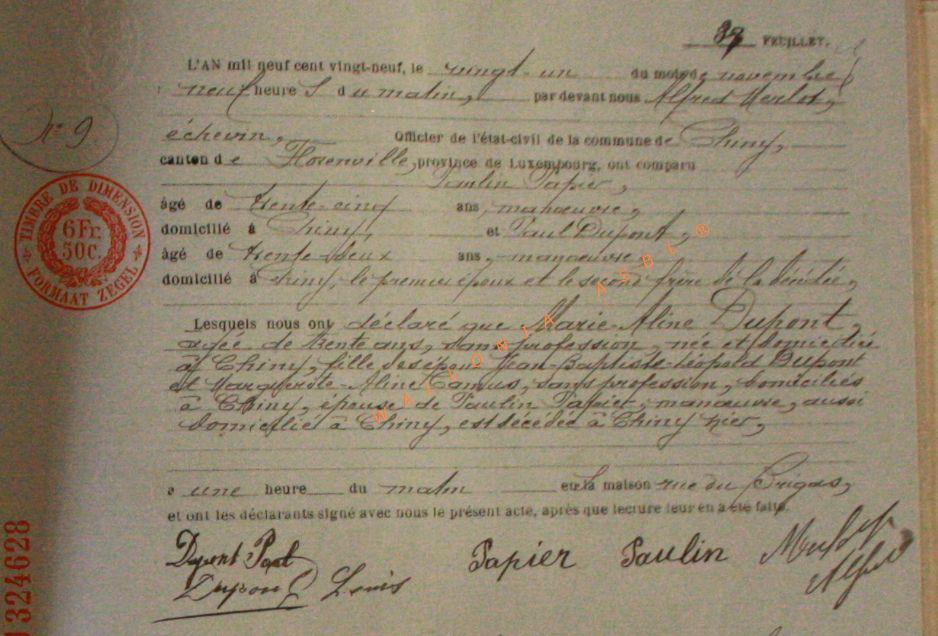 39 FEUILLET.
L'AN mil neuf cent vingt-neuf, le vingt-un du mois de novembre
neuf heure s du matin, par devant nous Alfred Merlot,
N° 9
échevin, Officier de l'état-civil de la commune de Chiny,
canton de Florenville, province de Luxembourg, ont comparu
Paulin Papier,
âgé de trente-cinq ans, manœuvre,
domicilié à Chiny, et Paul Dupont,
âgé de trente-deux ans, manœuvre,
domicilié à Chiny, le premier époux et le second frère de la décédée,
TIMBRE DE DIMENSION
6 Fr.
50c.
FORMAAT ZEGEL
Lesquels nous ont déclaré que Marie-Aline Dupont,
agée de trente ans, sans profession, née et domiciliée
à Chiny, fille des époux Jean-Baptiste-Léopold Dupont
et Marguerite-Aline Camus, sans profession, domiciliés
à Chiny, épouse de Paulin Papier, manœuvre, aussi
domicilié à Chiny, est décédée à Chiny hier,
à une heure du matin en la maison rue du
et ont les déclarants signé avec nous le présent acte, après que lecture leur en a été faite.
Dupont Paul
Dupont Louis
Papier Paulin
324628
WALLONIA ASBL ®